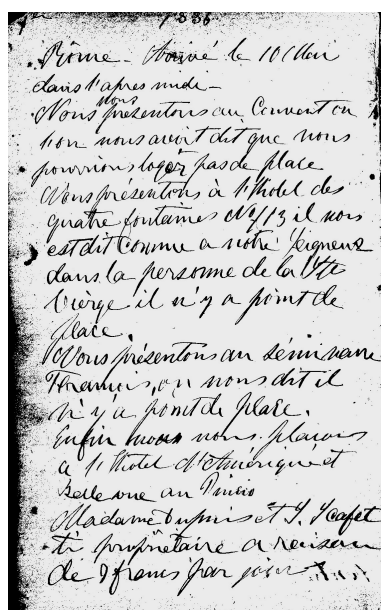 1886
Rome - Arrivé le 10 Mai
dans l'apres midi -
Nous nous présentons au Couvent ou
l'on nous avoit dit que nous
pourrions loger pas de place
Nous présentons à l'hotel des
quatre fontaines No 113 il nous
est dit comme a notre Seigneur
dans la personne de la Ste
Vierge il n'y a point de
place.
Nous présentons au séminaire
francais, on nous dit il
n'y a point de place.
Enfin nous nous plaçons
a l'hotel d'Amérique et
Belle vue au Pincio
Madame Dupuis et J.
propriétaire a raison
de 9 francs par jour